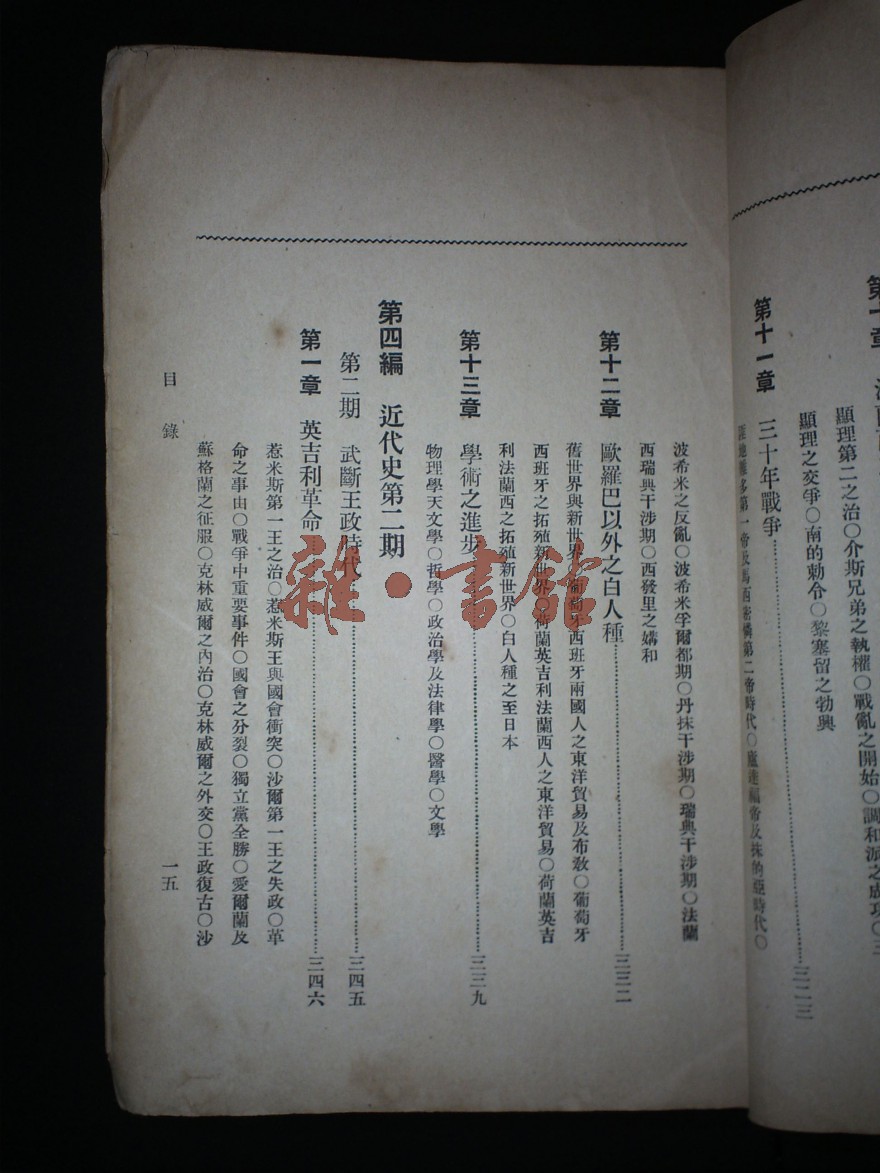 顯理第二之治〇介斯兄弟之執權〇戰亂之開始〇調和派之成功〇三
顯理之交爭〇南的勅令〇黎塞留之勃興
第十一章 三十年戰爭……三二三
第一帝及馬西第二帝時代〇盧達福帝及抹的亞時代〇
波希米之反亂〇波希米孚爾都期〇丹抹干涉期〇瑞典干涉期〇法蘭
西瑞典干涉期〇西發里之媾和
第十二章 歐羅巴以外之白人種……三三二
舊世界與新世界〇葡萄牙西班牙兩國人之東洋貿易及布敎〇葡萄牙
西班牙之拓殖新世界〇荷蘭英吉利法蘭西人之東洋貿易〇荷蘭英吉
利法蘭西之拓殖新世界〇白人種之至日本
第十三章 學術之進步……三三九
物理學天文學〇哲學〇政治學及法律學〇醫學〇文學
第四編 近代史第二期
第二期 武斷王政時代……三四五
第一章 英吉利革命……三四六
惹米斯第一王之治〇惹米斯王與國會衝突〇沙爾第一王之失政〇革
命之事由〇戰爭中重要事件〇國會之分裂〇獨立黨全勝〇愛爾蘭及
蘇格蘭之征服〇克林威爾之內治〇克林威爾之外交〇王政復古〇沙
目錄
一五
雜·書館